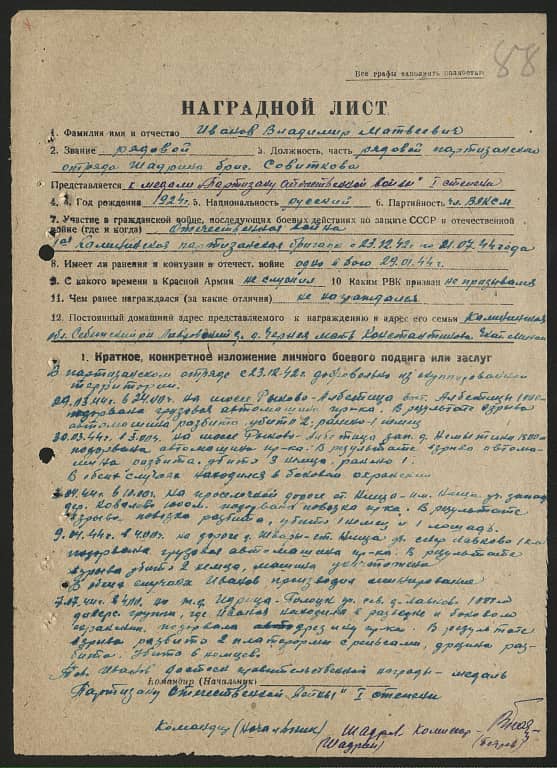 88
Все графы заполнять полностью
НАГРАДНОЙ ЛИСТ
1. Фамилия имя и отчество Иванов Владимир Матвеевич
2. Звание рядовой 3. Должность, часть рядовой партизанского
отряда Шадрина бриг.
Представляется к медали "Партизану отечественной войны" I степени
4. Год рождения 1924г. 5. Национальность русский 6. Партийность чл. ВЛКСМ
7. Участие в гражданской войне, последующих боевых действиях по защите СССР и отечественной
войне (где и когда) Отечественная война
Калининская партизанская бригада с 23.12.42г по 21.07.44 года
8. Имеет ли ранения и контузии в отечест. войне одно в бою 29.01.44г.
9. С какого времени в Красной Армии не служил 10 Каким РВК призван не призывался
11. Чем ранее награждался (за какие отличия) не награждался
12. Постоянный домашний адрес представляемого к награждению и адрес его семьи Калининская
обл. Себежский р-н д. Черная мать Константинова
1. Краткое, конкретное изложение личного боевого подвига или заслуг
В партизанском отряде с 23.12.42г добровольно из оккупированной
территории.
на шоссе Рыково-
подорвана грузовая автомашина пр-ка. В результате взрыва
автомашина разбита, убито 2, ранено 1 немец
30.03.44г. на шоссе Рыково-
подорвана автомашина пр-ка. В результате взрыва автома-
шина разбита, убито 3 немца, ранено 1.
В обеих случаях находился в боковом охранении
на проселочной дороге
дер. Ковалево 1000м. подорвана повозка пр-ка. В результате
взрыва повозка разбита, убито 1 немец и 1 лошадь.
9.04.44г. в 4.00г. на дороге
подорвана грузовая автомашина пр-ка. В результате
взрыва убито 2 немца, машина уничтожена
В обеих случаях Иванов производил минирование
на ж.д. Идрица-Полоцк
диверс. группа, где Иванов находился в разведке и боковом
охранении, подорвала дрезину пр-ка. В результате
взрыва разбито 2 платформы с рельсами, дрезина раз-
бита. Убито
Тов. Иванов достоин правительственной награды - медаль
Командир (Начальник)
"Партизану Отечественной войны" I степени
Командир (Начальник) Шадрин Комиссар
(Шадрин)